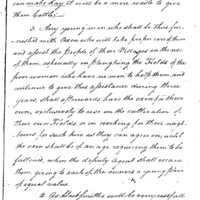 can make hay it will be a mere waste to give
them Cattle.
3. Any young man who shall be thus fur-
nished with Oxen who will take proper care of them
and assist the People of their Villages in the use
of them, especially in Ploughing the Fields of the
poor women who have no men to help them, and
continue to give this assistance during three
years, shall afterwards have the oxen for their
own, exclusively to use in the cultivation of
their own Fields, or in working for their neigh-
bours, for such hire as they can agree on, until
the oxen shall be of an age requiring them to be
fattened, when the deputy Agent shall receive
them, giving to each of the owners a young pair
of equal value.
4. As blacksmiths will be very usefull